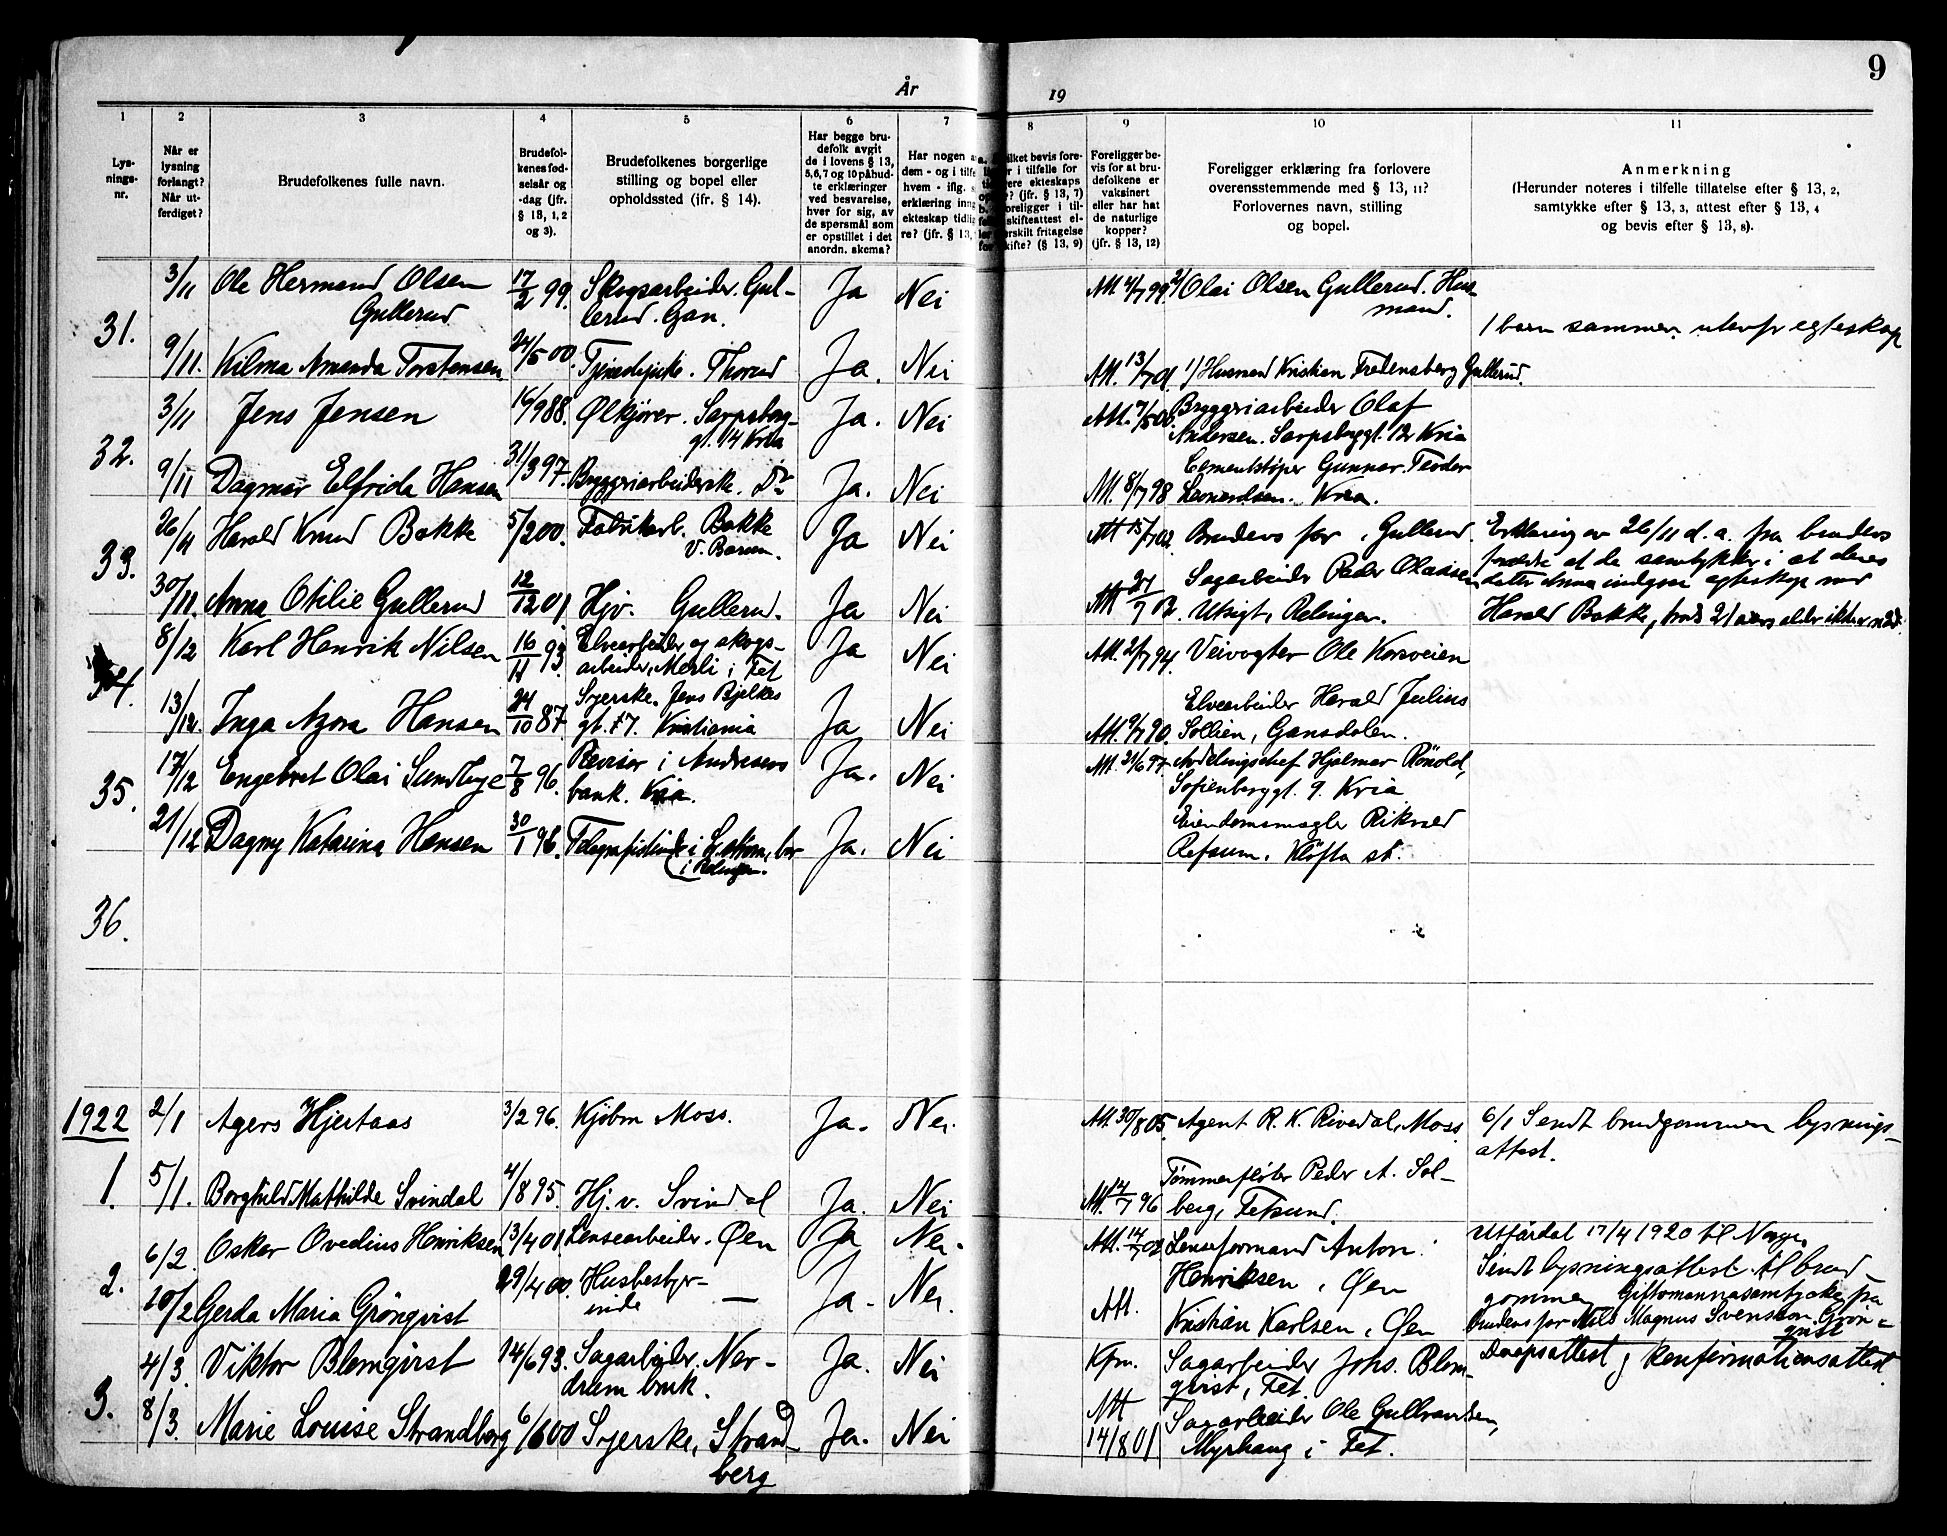 9
År
19
1
2
3
4
5
6
7
8
9
10
11
Lys-
nings-
nr.
Når er
lysning
forlangt?
Når ut-
ferdiget?
Brudefolkenes fulle navn.
Brudefol-
kenes fød-
selsår og
-dag (jfr.
§ 13, 1, 2
og 3).
Brudefolkenes borgerlige
stilling og bopel eller
opholdssted (jfr. § 14).
Har begge bru-
defolk avgit
de i lovens § 13,
5,6,7 og 10 påbud-
te erklæringer
ved besvarelse,
hver for sig, av
de spørsmål som
er opstillet i det
anordn. skema?
Har nogen a
dem - og i tilfe
hvem - iflg. s
erklæring inng
ekteskap tidlig
re? (jfr. § 13,
ilket bevis fore-
r i tilfelle for
ere ekteskaps
? (jfr. § 13, 7)
oreligger i til-
skifteattest el-
ærskilt fritagelse
kifte? (§ 13, 9)
Foreligger be-
vis for at bru-
defolkene er
vaksinert
eller har hat
de naturlige
kopper?
(jfr. § 13, 12)
Foreligger erklæring fra forlovere
overensstemmende med § 13, 11?
Forlovernes navn, stilling
og bopel.
Anmerkning
(Herunder noteres i tilfelle tillatelse efter § 13, 2,
samtykke efter § 13, 3, attest efter § 13, 4
og bevis efter § 13, 8).
31.
3/11 Ole Hermand Olsen 17/2 99. Skogsarbeider. Gul- Ja Nei Att. 4/7 99 2/ Olai Olsen Gullerud. Hus-
Gullerud lerud. Gan. mand.
1 barn sammen utenfr egteskap
9/11. Kilma Amanda Torstensen 24/5 00. Tjenestepike. Thorud Ja. Nei Att. 13/7 01. 1/ Husmand Kristian Fredensberg Gullerud.
32.
3/11 Jens Jensen 16/9 88. Ølkjører. Sarpsborg- Ja. Nei Att. 7/5 00. Bryggeriarbeider Olaf
gt. 14 Kria Andersen. Sarpsborggt. 12 Kria
9/11 Dagmar Elfrida Hansen 31/3 97. Bryggeriarbeiderske. Do Ja. Nei Att. 8/7 98 Cementstøper Gunnar Teodor
Leonardsen. Kria.
33.
26/11 Harald Knud Bakke 5/2 00. Fabrikarb. Bakke Ja Nei Att 15/7 02. Brudens far, Gullerud. Erklæring av 26/11 d.a. fra brudens
V. Bærum. Sagarbeider Peder Olaussen forældre at de samtykker i at deres
30/11. Anna Otilie Gullerud 12/12 01 Hjv. Gullerud. Ja Nei Att 27/7 02. Utsigt, Rælingen. datter Anna indgaar egteskap med
Harald Bakke, trods 21 aars alder ikke er naad.
34.
8/12 Karl Henrik Nilsen 16/11 93. Elvearbeider og skogs- Ja Nei Att. 2/7 94. Veivogter Ole Korsveien
arbeider, Merli i Fet
13/12. Inga Azora Hansen 24/10 87 Syerske. Jens Bjelkes Ja Nei Att. 9/7 90. Elvearbeider Harald Julius
gt. 17. Kristiania Sollien, Gansdalen.
35.
17/12 Engebret Olai Sundbye 7/8 96. Revisor i Andresens Ja. Nei Att. 21/6 97 Avdelingschef Hjalmar Rönold,
bank. Kria. Sofienberggt. 9. Kria
21/12 Dagny Katarina Hansen 30/1 96. Telegrafistinde i L.strøm, bor Ja. Nei Eiendomsmægler Rikard
i Rælingen. Refsum. Kløfta st.
36.
1922
2/1 Agers Hjertaas 3/2 96. Kjøbm Moss. Ja. Nei. Att. 30/8 05. Agent R. K. Rivedal, Moss. 6/1 Sendt brudgommen lysnings-
attest.
1.
5/1. Borghild Mathilde Svindal 4/8 95. Hj. v. Svindal Ja. Nei Att. 14/7 96 Tømmerfløter Peder A. Sol-
berg, Fetsund.
2.
6/2. Oskar Ovedius Henriksen 13/4 01 Lensearbeider. Øen Ja Nei. Att. 14/7 02 Lenseformand Anton Utfärdat 17/4 1920 til Norge.
Henriksen, Øen Sendt lysningsattest til brud-
10/2 Gerda Maria Grönqvist 29/4 00. Husbestyr- Ja. Nei. Att. gommen Giftomannasamtycke fra
inde — Kristian Karlsen, Øen brudens far Nils Magnus Svensson Grön=
qvist
3.
4/3. Viktor Blomqvist 14/6 93. Sagarbeider. Ner- Ja. Nei Kfm. Sagarbeider Johs. Blom- Daapsattest, konfirmationsattest
drum bruk. qvist, Fet.
8/3. Marie Louise Strandberg 6/6 00 Syerske, Strand- Ja. Nei Att 14/8 01 Sagarbeider Ole Gulbrandsen,
berg Myrhaug i Fet.